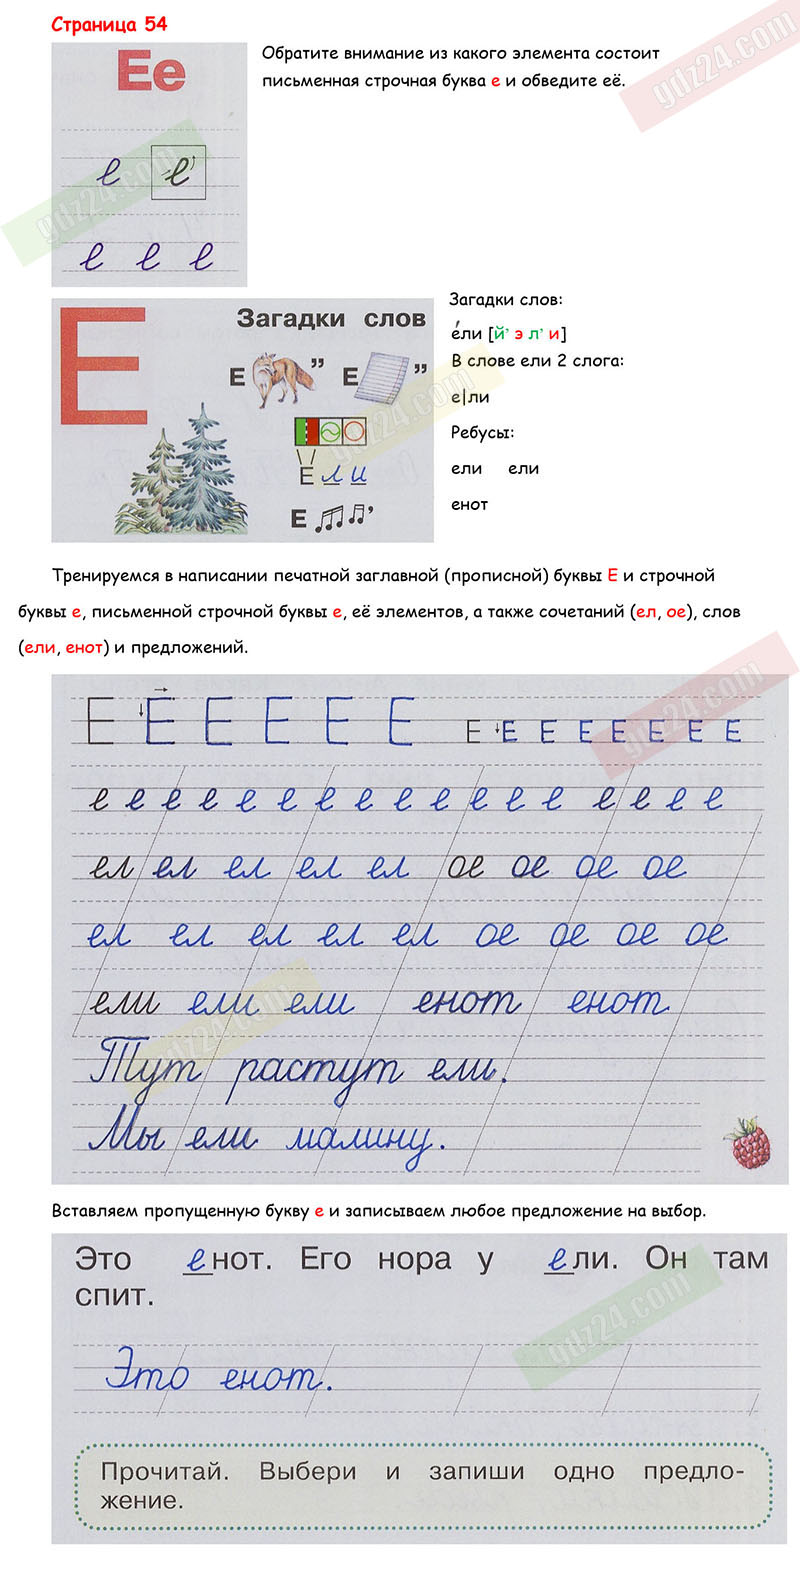 Страница 54
Ее
Обратите внимание из какого элемента состоит
письменная строчная буква е и обведите её.
е е
е е е
Е
Загадки слов
Е ,,
Е ,,
Ели
Е ,
Загадки слов:
е́ли [й’ э л’ и]
В слове ели 2 слога:
е|ли
Ребусы:
ели ели
енот
Тренируемся в написании печатной заглавной (прописной) буквы Е и строчной
буквы е, письменной строчной буквы е, её элементов, а также сочетаний (ел, ое), слов
(ели, енот) и предложений.
Е Е Е Е Е Е Е Е Е Е Е Е Е
е е е е е е е е е е е е е е е е е
ел ел ел ел ел ое ое ое ое
ел ел ел ел ел ое ое ое ое
ели ели ели енот енот
Тут растут ели.
Мы ели малину.
Вставляем пропущенную букву е и записываем любое предложение на выбор.
Это енот. Его нора у ели. Он там
спит.
Это енот.
Прочитай. Выбери и запиши одно предло-
жение.
gdz24.com
gdz24.com
gdz24.com
gdz24.com
gdz24.com
gdz24.com